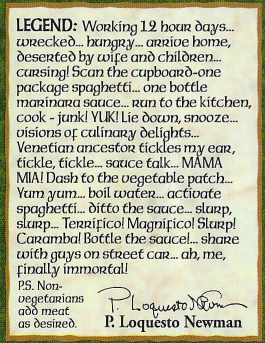 LEGEND: Working 12 hour days...
wrecked... hungry... arrive home,
deserted by wife and children...
cursing! Scan the cupboard-one
package spaghetti... one bottle
marinara sauce... run to the kitchen,
cook - junk! YUK! Lie down, snooze...
visions of culinary delights...
Venetian ancestor tickles my ear,
tickle, tickle... sauce talk... MAMA
MIA! Dash to the vegetable patch...
Yum yum... boil water... activate
spaghetti... ditto the sauce... slurp,
slurp... Terrifico! Magnifico! Slurp!
Caramba! Bottle the sauce!... share
with guys on street car... ah, me,
finally immortal!
P.S. Non-
vegetarians
add meat
as desired.
P. Loquesto Newman
P. Loquesto Newman